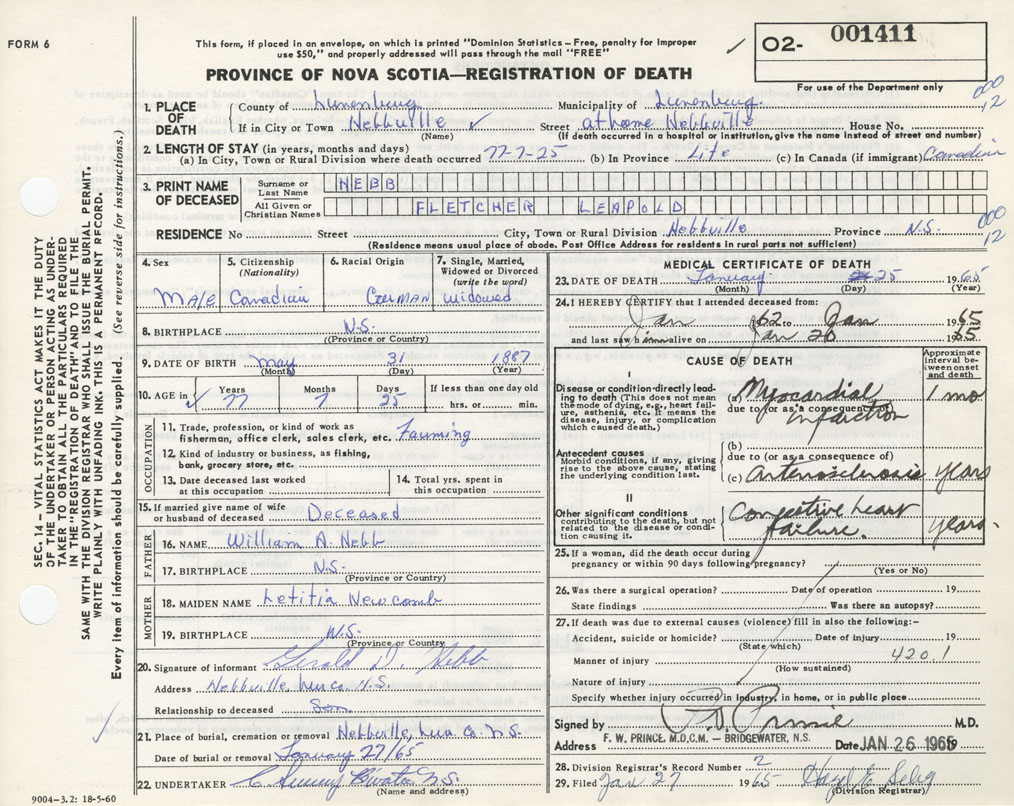 FORM 6
This form, if placed in an envelope, on which is printed "Dominion Statistics – Free, penalty for improper
use $50," and properly addressed will pass through the mail "FREE"
PROVINCE OF NOVA SCOTIA—REGISTRATION OF DEATH
✓ O2- 001411
For use of the Department only
000
12
1. PLACE OF DEATH { County of Lunenburg Municipality of Lunenburg
If in City or Town Hebbville ✓ Street at home Hebbville House No.
(Name) (If death occurred in a hospital or institution, give the name instead of street and number)
2. LENGTH OF STAY (in years, months and days)
(a) In City, Town or Rural Division where death occurred 77-7-25 (b) In Province Life (c) In Canada (if immigrant) Canadian
3. PRINT NAME OF DECEASED { Surname or Last Name HEBB
All Given or Christian Names FLETCHER LEAPOLD
RESIDENCE No Street City, Town or Rural Division Hebbville Province N.S.
000
12
(Residence means usual place of abode. Post Office Address for residents in rural parts not sufficient)
4. Sex 5. Citizenship (Nationality) 6. Racial Origin 7. Single, Married, Widowed or Divorced (write the word)
Male Canadian German widowed
8. BIRTHPLACE N.S.
(Province or Country)
9. DATE OF BIRTH May 31 1887
(Month) (Day) (Year)
10. AGE in ✓ Years 77 Months 7 Days 25 If less than one day old
hrs. or min.
OCCUPATION
11. Trade, profession, or kind of work as
fisherman, office clerk, sales clerk, etc. Farming
12. Kind of industry or business, as fishing,
bank, grocery store, etc.
13. Date deceased last worked
at this occupation
14. Total yrs. spent in
this occupation
15. If married give name of wife
or husband of deceased Deceased
FATHER
16. NAME William A. Hebb
17. BIRTHPLACE N.S.
(Province or Country)
MOTHER
18. MAIDEN NAME Letitia Newcomb
19. BIRTHPLACE N.S.
(Province or Country)
20. Signature of informant Gerald D. Hebb
Address Hebbville, Lun Co. N.S.
Relationship to deceased Son
21. Place of burial, cremation or removal Hebbville, Lun. Co. N.S.
Date of burial or removal January 27/65
22. UNDERTAKER N.S.
(Name and address)
MEDICAL CERTIFICATE OF DEATH
23. DATE OF DEATH January 25 1965
(Month) (Day) (Year)
24. I HEREBY CERTIFY that I attended deceased from:
Jan 1962 to Jan 1965
and last saw him alive on Jan 20 1965
CAUSE OF DEATH
Approximate interval between onset and death
I
Disease or condition directly leading to death (This does not mean
the mode of dying, e.g., heart failure, asthenia, etc. It means the
disease, injury, or complication
which caused death.)
(a) Myocardial infarction 1 mo
due to (or as a consequence of)
Antecedent causes
Morbid conditions, if any, giving
rise to the above cause, stating
the underlying condition last.
(b)
due to (or as a consequence of)
(c) Arteriosclerosis years
II
Other significant conditions
contributing to the death, but not
related to the disease or condition
causing it.
Congestive heart failure. years.
25. If a woman, did the death occur during
pregnancy or within 90 days following pregnancy?
(Yes or No)
26. Was there a surgical operation? Date of operation 19
State findings Was there an autopsy?
27. If death was due to external causes (violence) fill in also the following:–
Accident, suicide or homicide? Date of injury 19
(State which)
Manner of injury 420.1
(How sustained)
Nature of injury
Specify whether injury occurred in industry, in home, or in public place
Signed by M.D.
Address F. W. PRINCE, M.D.C.M. – BRIDGEWATER, N.S. Date JAN 26 1965
28. Division Registrar's Record Number 2
29. Filed Jan 27 1965 Hazel E. Selig
(Division Registrar)
SEC. 14 – VITAL STATISTICS ACT MAKES IT THE DUTY
OF THE UNDERTAKER OR PERSON ACTING AS UNDERTAKER
TO OBTAIN ALL THE PARTICULARS REQUIRED
IN THE "REGISTRATION OF DEATH" AND TO FILE THE
SAME WITH THE DIVISION REGISTRAR WHO SHALL ISSUE THE BURIAL PERMIT.
WRITE PLAINLY WITH UNFADING INK. THIS IS A PERMANENT RECORD.
Every item of information should be carefully supplied. (See reverse side for instructions.)
9004–3.2: 18-5-60